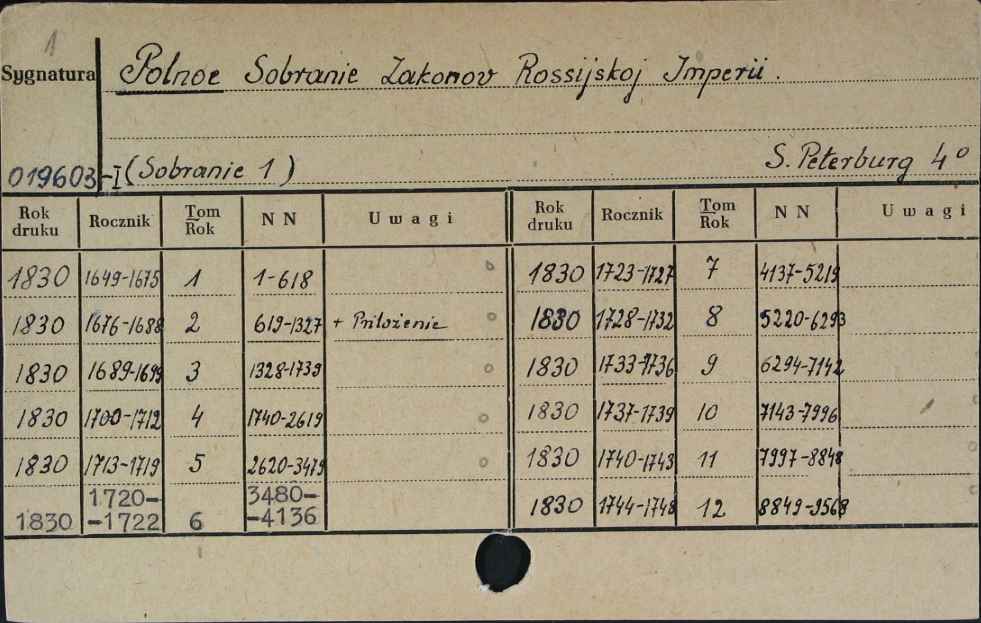 1
Sygnatura Polnoe Sobranie Zakonov Rossijskoj Imperii.
S. Peterburg 4°
019603-I (Sobranie 1)
Rok druku Rocznik Tom Rok N N Uwagi
1830 1649-1675 1 1-618
1830 1676-1688 2 619-1327 + Priłożenie
1830 1689-1699 3 1328-1739
1830 1700-1712 4 1740-2619
1830 1713-1719 5 2620-3479
1830 1720--1722 6 3480--4136
Rok druku Rocznik Tom Rok N N Uwagi
1830 1723-1727 7 4137-5219
1830 1728-1732 8 5220-6293
1830 1733-1736 9 6294-7142
1830 1737-1739 10 7143-7996
1830 1740-1743 11 7997-8848
1830 1744-1748 12 8849-9568